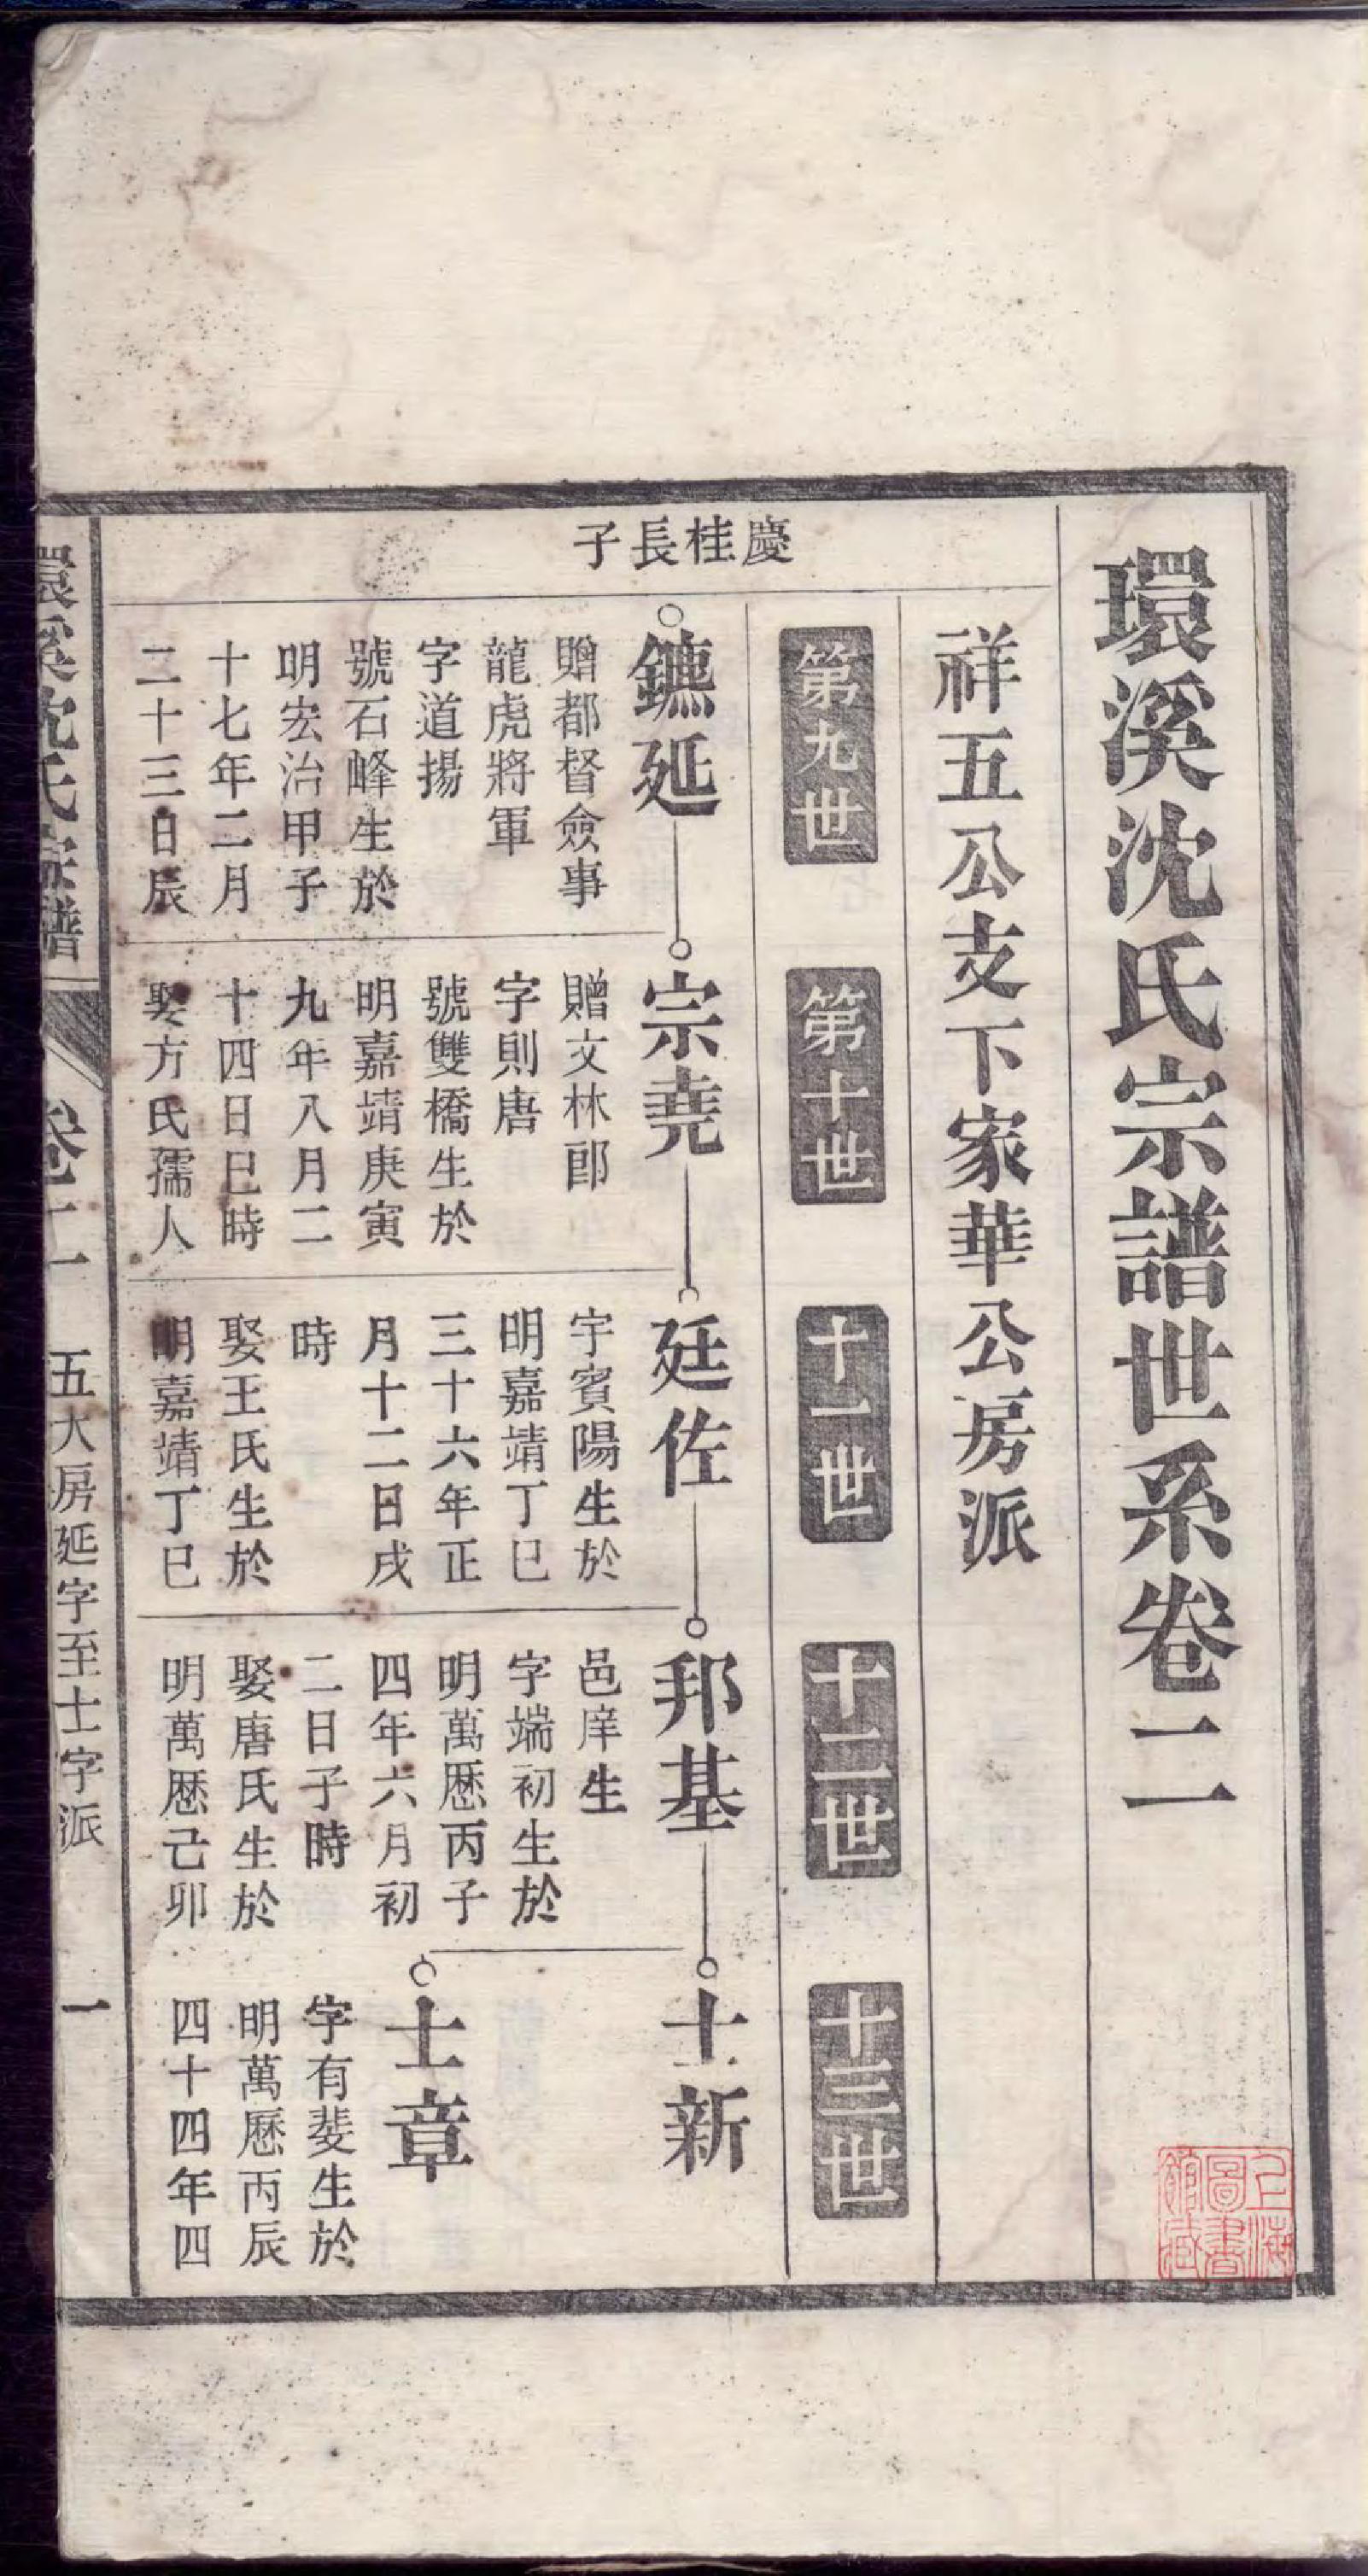 環溪沈氏宗譜世系卷二
祥五公支下家華公房派
第九世
第十世
十一世
十二世
十三世
慶桂長子
鑣延
贈都督僉事
龍虎將軍
字道揚
號石峰生於
明宏治甲子
十七年二月
二十三日辰
宗堯
贈文林郎
字則唐
號雙橋生於
明嘉靖庚寅
九年八月二
十四日巳時
娶方氏孺人
廷佐
字賓陽生於
明嘉靖丁巳
三十六年正
月十二日戌
時
娶王氏生於
明嘉靖丁巳
邦基
邑庠生
字端初生於
明萬厯丙子
四年六月初
二日子時
娶唐氏生於
明萬厯己卯
士新
士章
字有斐生於
明萬厯丙辰
四十四年四
環溪沈氏宗譜
卷二
五大房延字至士字派
一
上海
圖書
館藏